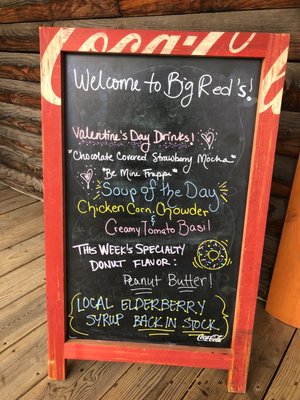 Coca-Cola
Welcome to Big Red's!
Valentine's Day Drinks!
*Chocolate Covered Strawberry Mocha*
*Be Mine Frappe*
Soup of the Day
Chicken Corn Chowder
&
Creamy Tomato Basil
This Week's Specialty
Donut Flavor:
Peanut Butter!
Local Elderberry
Syrup Back in Stock
Coca-Cola